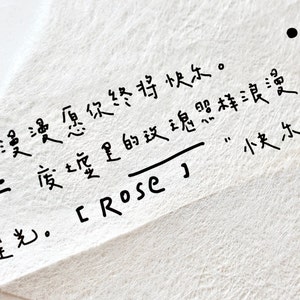 漫漫愿你终将快乐。
废墟里的玫瑰照样浪漫
光。[Rose] "快乐